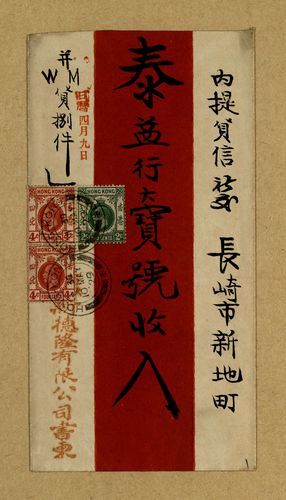 內提貨信裝 長崎市新地町
泰益行大寶號收入
并貨捌件
W M
旧曆四月九日
HONG KONG
HONG KONG
HONG KONG
德隆有限公司書柬